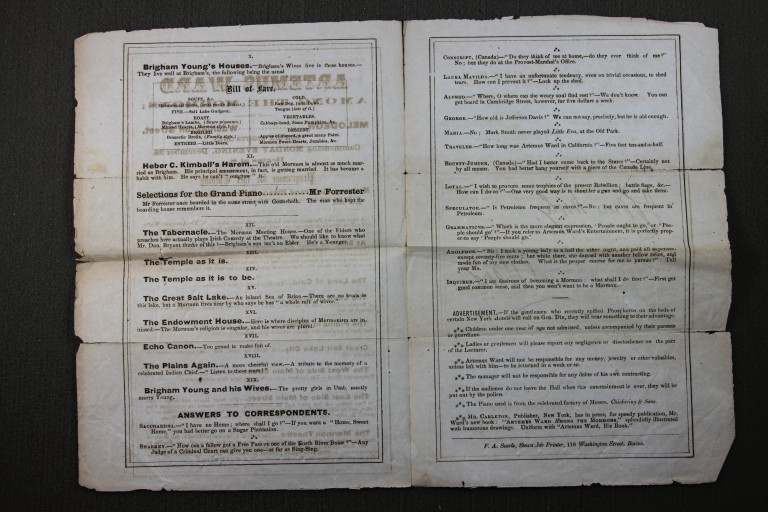 X.
Brigham Young's Houses.—Brigham's Wives live in these houses.—
They live well at Brigham's, the following being the usual
Bill of Fare.
SOUPS, &c.
FISH.—Salt Lake Gudgeon.
ROAST
Brigham's Lambs, (Sauce piquante.)
Minced Hearts, (Mormon style.)
BROILED
Domestic Broils, (Family style.)
ENTREES.—Little Deers.
COLD.
Raw Dog,
Tongue (lots of it.)
VEGETABLES.
Cabbage-head, Some Pumpkins, &c.
DESSERT.
Apples of discord, a great many Pairs.
Mormon Sweet-Hearts, Jumbles, &c.
XI.
Heber C. Kimball's Harem.—This old Mormon is almost as much mar-
ried as Brigham. His principal amusement, in fact, is getting married. It has become a
habit with him. He says he can't
Selections for the Grand Piano Mr Forrester
Mr Forrester once boarded in the same street with Gottschalk. The man who kept the
boarding house remembers it.
XII.
The Tabernacle.—The Mormon Meeting House.—One of the Elders who
preaches here actually plays Irish Comedy at the Theatre. We should like to know what
Mr. Dan. Bryant thinks of this?—Brigham's son isn't an Elder. He's a Younger.
XIII.
The Temple as it is.
XIV.
The Temple as it is to be.
XV.
The Great Salt Lake.—An inland Sea of Brine.—There are no trout in
this lake, but a Mormon lives near by who says he has "a whole raft of wives."
XVI.
The Endowment House.—Here is where disciples of Mormonism are in-
itiated.—The Mormon's religion is singular, and his wives are plural.
XVII.
Echo Canon.—Too grand to make fun of.
XVIII.
The Plains Again.—A more cheerful view.—A tribute to the memory of a
celebrated Indian Chief.—"Listen to these tears!"
XIX.
Brigham Young and his Wives.—The pretty girls in Utah, mostly
marry Young.
ANSWERS TO CORRESPONDENTS.
SACCHARISSA.—"I have no Home; where shall I go?"—If you want a "Home, Sweet
Home," you had better go on a Sugar Plantation.
—"How can a fellow get a Free Pass on one of the North River Boats?"—Any
Judge of a Criminal Court can give you one—as far as Sing-Sing.
CONSCRIPT, (Canada)—"Do they think of me at home,—do they ever think of me?"
No; but they do at the Provost-Marshal's Office.
LAURA MATILDA.—"I have an unfortunate tendency, even on trivial occasions, to shed
tears. How can I prevent it?"—Lock up the shed.
ALFRED—"Where, O where can the weary soul find rest?"—We don't know. You can
get board in Cambridge Street, however, for five dollars a week.
GEORGE.—"How old is Jefferson Davis?" We can not say, precisely, but he is old enough.
MARIA—No; Mark Smith never played Little Eva, at the Old Park.
TRAVELER—"How long was Artemus Ward in California?"—Five feet ten-and-a-half.
BOUNTY-JUMPER, (Canada)—"Had I better come back to the States?"—Certainly not
by all means. You had better hang yourself with a piece of the Canada Line.
LOYAL.—"I wish to procure some trophies of the present Rebellion; battle flags, &c.—
How can I do so?"—One very good way is to shoulder a gun and go and take them.
SPECULATOR.—"Is Petroleum frequent in caves?"—No; but caves are frequent in
Petroleum.
GRAMMATICUS.—"Which is the more elegant expression, 'People ought to go,' or 'Peo-
ple should go?'"—If you refer to Artemus Ward's Entertainment, it is perfectly prop-
er to say 'People should go.'
ADOLPHUS.—"Sir: I took a young lady to a ball the other night, and paid all expenses
except seventy-five cents; but while there, she danced with another fellow twice, and
made fun of my new clothes. What is the proper course for me to pursue?" Tell
your Ma.
INQUIRER.—"I am desirous of becoming a Mormon; what shall I do first?"—First get
good common sense, and then you won't want to be a Mormon.
ADVERTISEMENT.—If the gentlemen who recently spilled Phosphorus on the beds of
certain New York Hotels will call on Gen. Dix, they will hear something to their advantage.
*** Children under one year of age not admitted, unless accompanied by their parents
or guardians.
*** Ladies or gentlemen will please report any negligence or disobedience on the part
of the Lecturer.
*** Artemus Ward will not be responsible for any money, jewelry or other valuables,
unless left with him—to be returned in a week or so.
*** The manager will not be responsible for any debts of his own contracting.
*** If the audience do not leave the Hall when this entertainment is over, they will be
put out by the police.
*** The Piano used is from the celebrated factory of Messrs. Chickering & Sons.
*** MR. CARLETON, Publisher, New York, has in press, for speedy publication, Mr.
Ward's new book: "ARTEMUS WARD AMONG THE MORMONS," splendidly illustrated
with humorous drawings. Uniform with "Artemus Ward, His Book."
F. A. Searle, Steam Job Printer, 118 Washington Street, Boston.